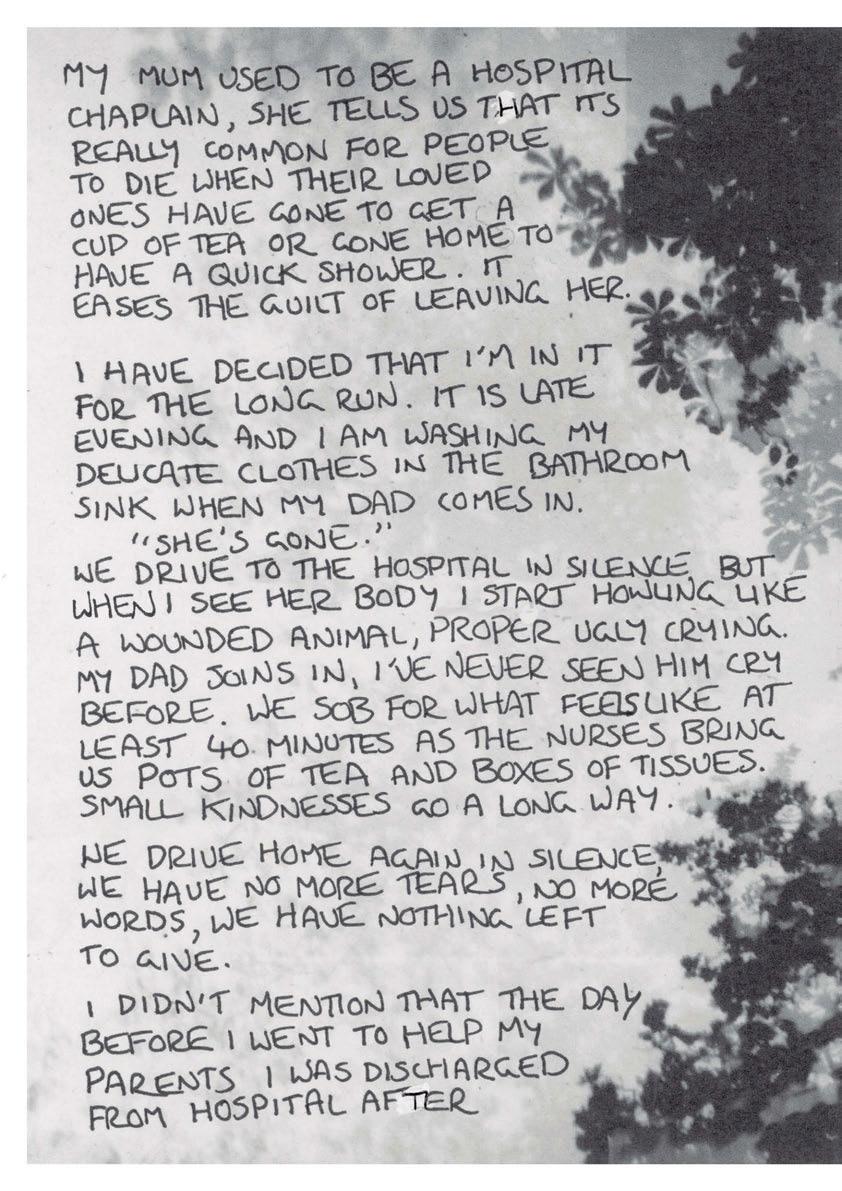 MY MUM USED TO BE A HOSPITAL
CHAPLAIN, SHE TELLS US THAT ITS
REALLY COMMON FOR PEOPLE
TO DIE WHEN THEIR LOVED
ONES HAVE GONE TO GET A
CUP OF TEA OR GONE HOME TO
HAVE A QUICK SHOWER. IT
EASES THE GUILT OF LEAVING HER.
I HAVE DECIDED THAT I'M IN IT
FOR THE LONG RUN. IT IS LATE
EVENING AND I AM WASHING MY
DELICATE CLOTHES IN THE BATHROOM
SINK WHEN MY DAD COMES IN.
"SHE'S GONE."
WE DRIVE TO THE HOSPITAL IN SILENCE BUT
WHEN I SEE HER BODY I START HOWLING LIKE
A WOUNDED ANIMAL, PROPER UGLY CRYING.
MY DAD JOINS IN, I'VE NEVER SEEN HIM CRY
BEFORE. WE SOB FOR WHAT FEELS LIKE AT
LEAST 40 MINUTES AS THE NURSES BRING
US POTS OF TEA AND BOXES OF TISSUES.
SMALL KINDNESSES GO A LONG WAY.
WE DRIVE HOME AGAIN IN SILENCE,
WE HAVE NO MORE TEARS, NO MORE
WORDS, WE HAVE NOTHING LEFT
TO GIVE.
I DIDN'T MENTION THAT THE DAY
BEFORE I WENT TO HELP MY
PARENTS I WAS DISCHARGED
FROM HOSPITAL AFTER